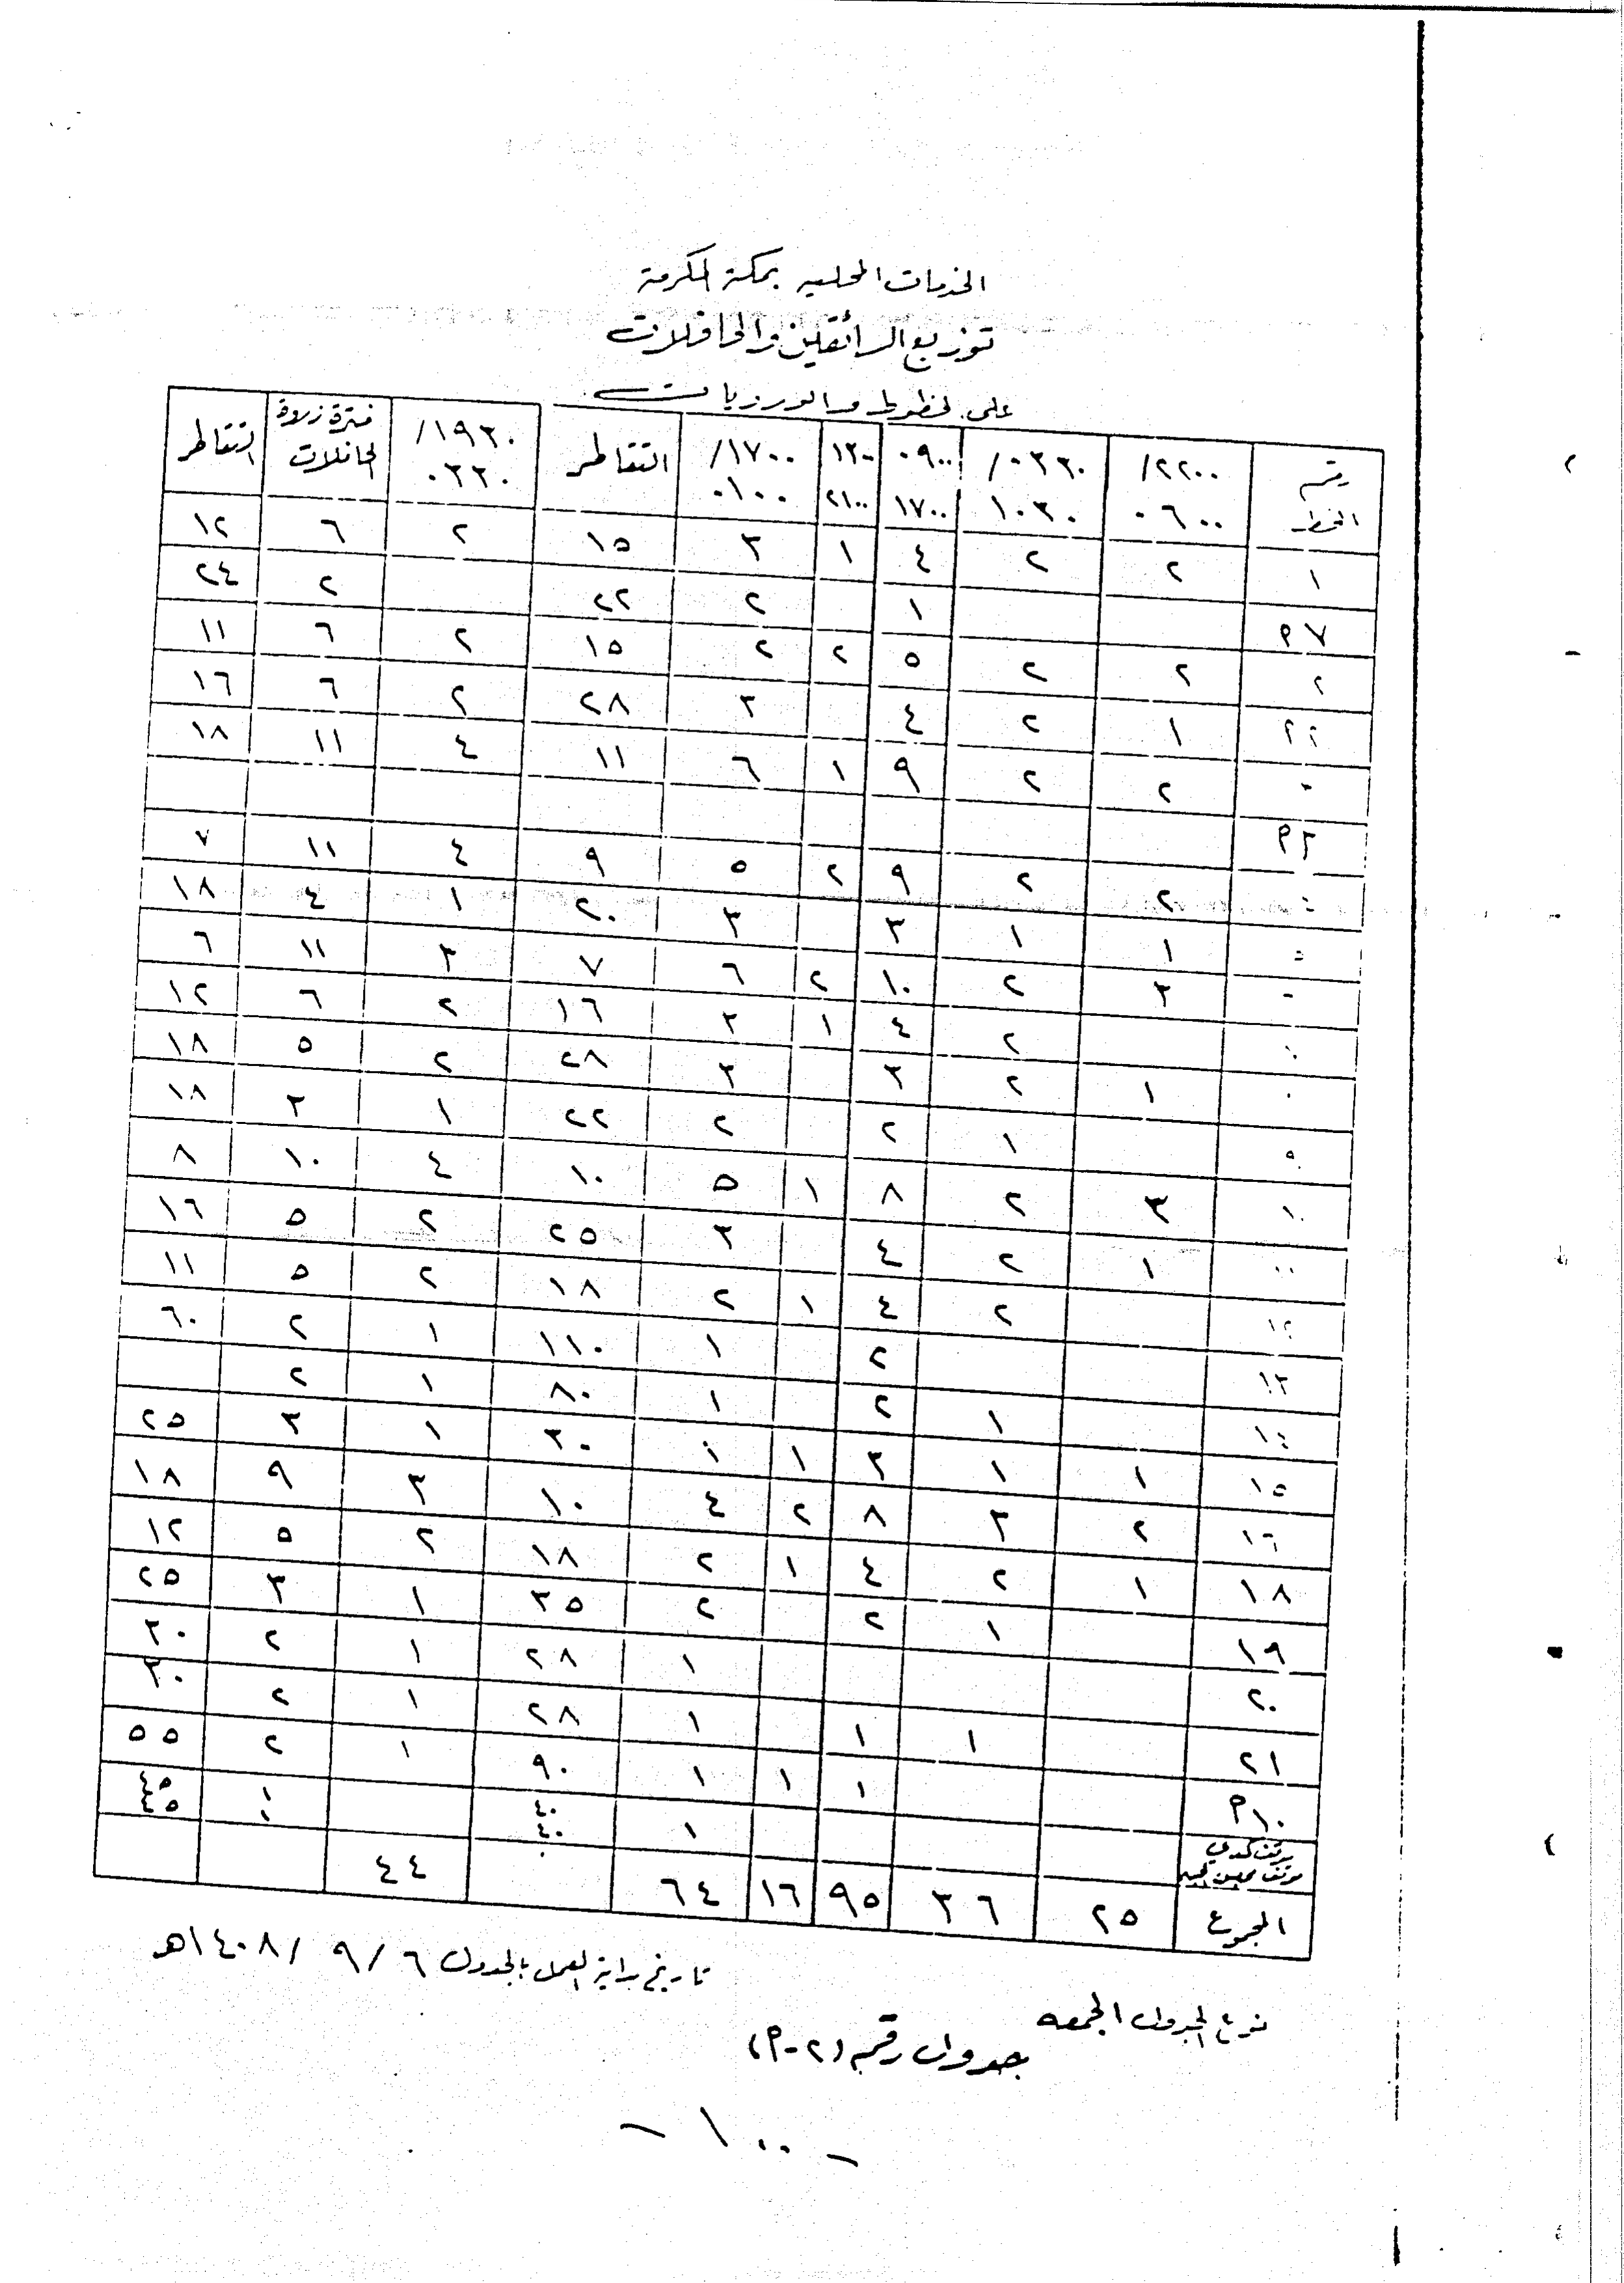 الخدمات المحليه بمكة المكرمة
توزيع السائقين والحافلات
على الخطوط والورديات
رقم الخط | ٢٢٠٠/ ٠٦٠٠ | ٠٣٣٠/ ١٠٣٠ | ٠٩٠٠ ١٧٠٠ | ١٣٠٠ ٢١٠٠ | ١٧٠٠/ ٠١٠٠ | التقاطر | ١٩٣٠/ ٠٣٣٠ | فترة ذروة الحافلات | التقاطر
١ | ٢ | ٢ | ٤ | ١ | ٣ | ١٥ | ٢ | ٦ | ١٢
٧م | | | ١ | | ٢ | ٢٢ | | ٢ | ٢٤
٢ | ٢ | ٢ | ٥ | ٢ | ٢ | ١٥ | ٢ | ٦ | ١١
| ١ | ٢ | ٤ | | ٣ | ٢٨ | ٢ | ٦ | ١٦
| ٢ | ٢ | ٩ | ١ | ٦ | ١١ | ٤ | ١١ | ١٨
٣م
| ٢ | ٢ | ٩ | ٢ | ٥ | ٩ | ٤ | ١١ | ٧
| ١ | ١ | ٣ | | ٣ | ٢٠ | ١ | ٤ | ١٨
| ٣ | ٢ | ١٠ | ٢ | ٦ | ٧ | ٣ | ١١ | ٦
| | ٢ | ٤ | ١ | ٣ | ١٦ | ٢ | ٦ | ١٢
| ١ | ٢ | ٣ | | ٣ | ٢٨ | ٢ | ٥ | ١٨
| | ١ | ٢ | | ٢ | ٢٢ | ١ | ٣ | ١٨
١٠ | ٣ | ٢ | ٨ | ١ | ٥ | ١٠ | ٤ | ١٠ | ٨
| ١ | ٢ | ٤ | | ٣ | ٢٥ | ٢ | ٥ | ١٦
١٢ | | ٢ | ٤ | ١ | ٢ | ١٨ | ٢ | ٥ | ١١
١٣ | | | ٢ | | ١ | ١١٠ | ١ | ٢ | ٦٠
١٤ | | ١ | ٢ | | ١ | ٨٠ | ١ | ٢ |
١٥ | ١ | ١ | ٣ | ١ | ١ | ٣٠ | ١ | ٣ | ٢٥
١٦ | ٢ | ٣ | ٨ | ٢ | ٤ | ١٠ | ٣ | ٩ | ١٨
١٨ | ١ | ٢ | ٤ | ١ | ٢ | ١٨ | ٢ | ٥ | ١٢
١٩ | | ١ | ٢ | | ٢ | ٣٥ | ١ | ٣ | ٢٥
٢٠ | | | | | ١ | ٢٨ | ١ | ٢ | ٣٠
٢١ | | ١ | ١ | | ١ | ٢٨ | ١ | ٢ | ٣٠
١٠م | | | ١ | ١ | ١ | ٩٠ | ١ | ٢ | ٥٥
موقف كدي | | | | | | ٤٠ | | ١ | ٤٥
موقف | | | | | ١ | ٤٠ | | ١ | ٤٥
المجموع | ٢٥ | ٣٦ | ٩٥ | ١٦ | ٦٤ | | ٤٤
تاريخ بداية العمل بالجدول ٦ / ٩ / ١٤٠٨هـ
نوع الجدول الجمعه
جدول رقم (٢-م)
- ١٠٠ -